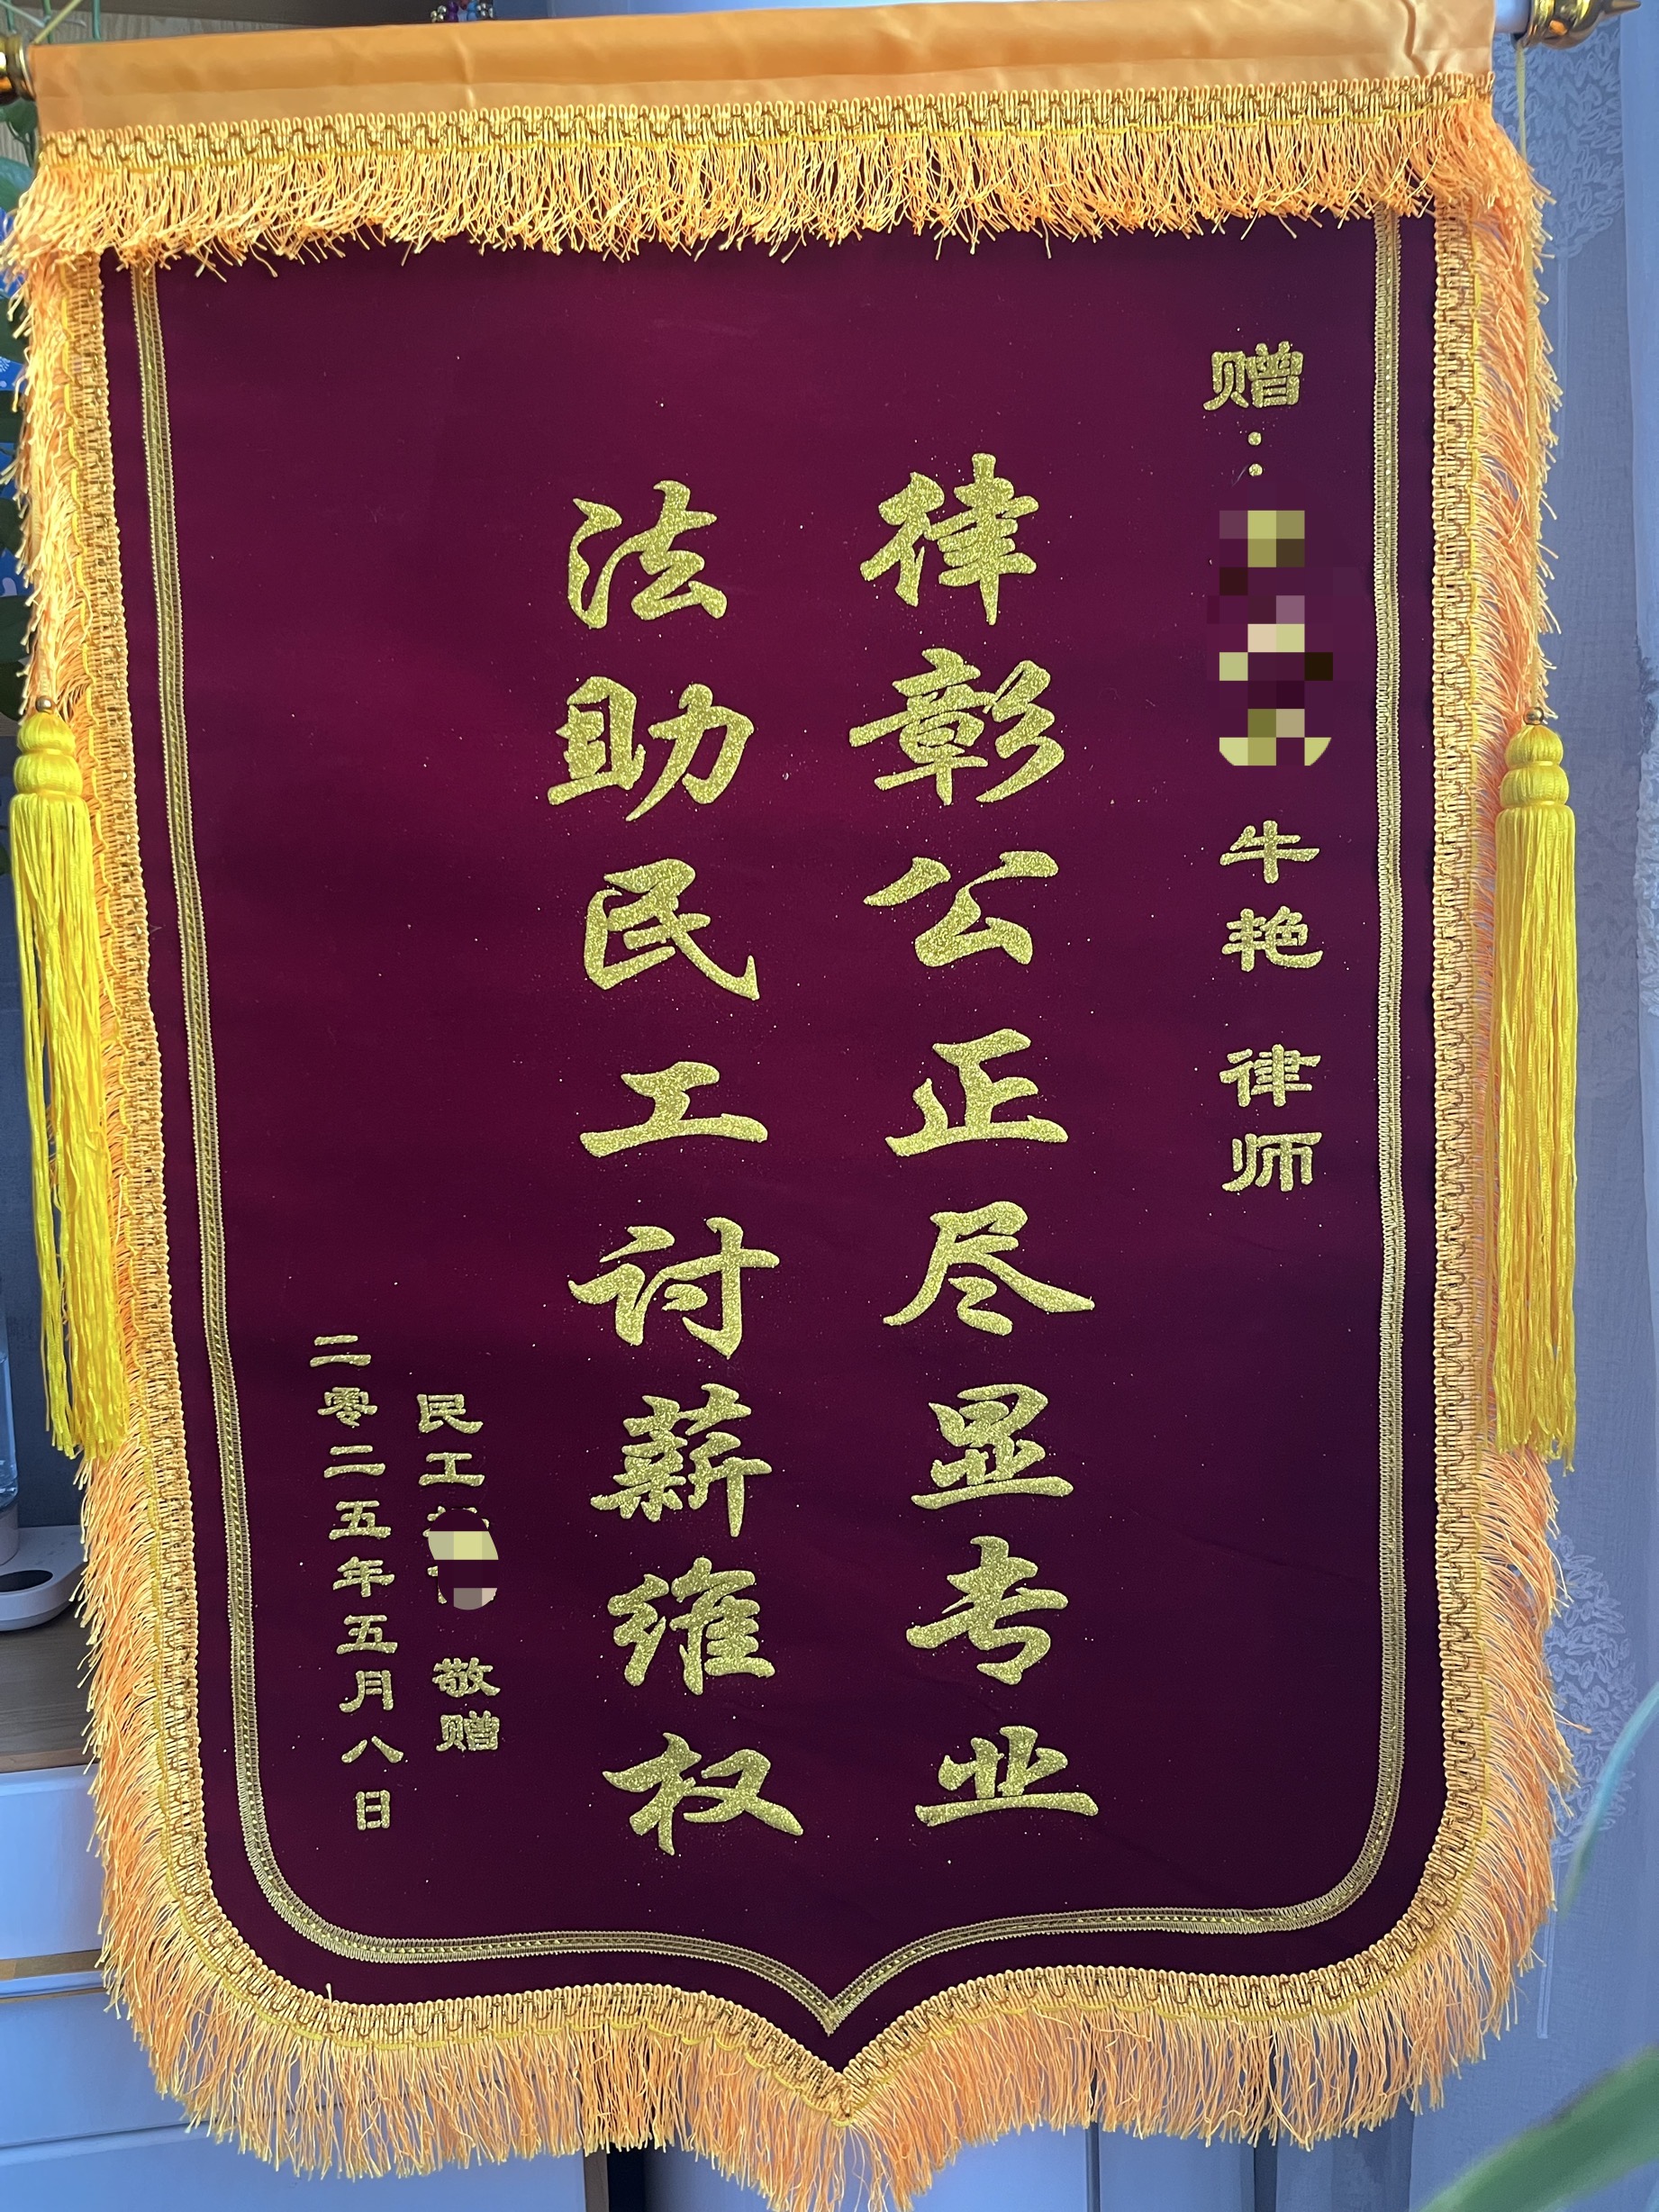 赠：牛艳 律师
律彰公正尽显专业
法助民工讨薪维权
民工 敬赠
二零二五年五月八日